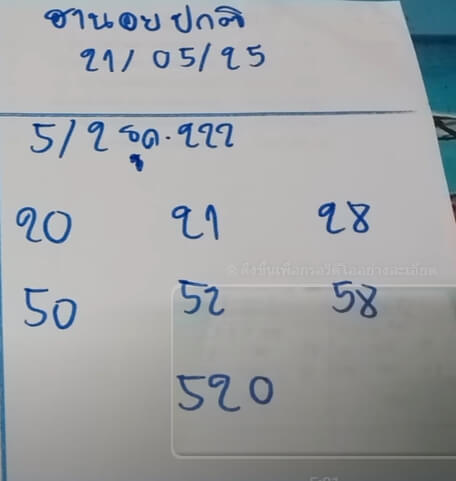 ฮานอยปกติ
21/05/25
5/2 รูด.222
20 21 28
ดึงขึ้นเพื่อกรอวิดีโออย่างละเอียด
50 52 58
520